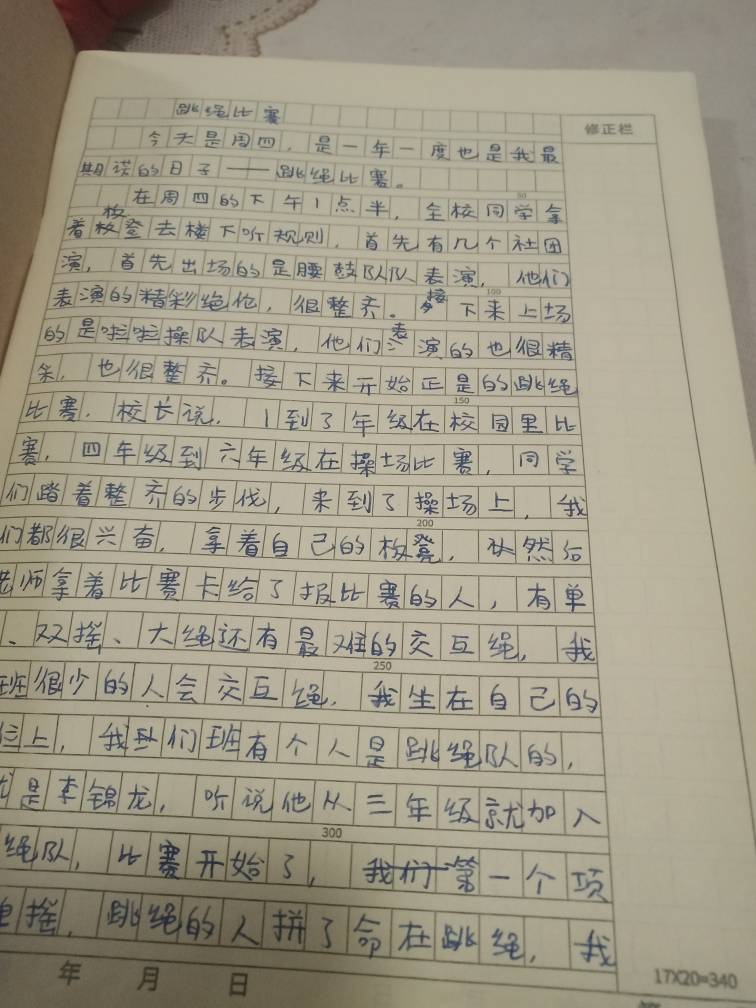 跳绳比赛
修正栏
今天是周四，是一年一度也是我最
期待的日子——跳绳比赛。
在周四的下午1点半，全校同学拿
50
着板登去楼下听规则，首先有几个社团
板
演，首先出场的是腰鼓队队表演，他们
100
表演的精彩绝伦，很整齐。接下来上场
的是啦啦操队表演，他们表演的也很精
采，也很整齐。接下来开始正是的跳绳
150
比赛，校长说，1到3年级在校园里比
赛，四年级到六年级在操场比赛，同学
们踏着整齐的步伐，来到了操场上，我
200
们都很兴奋，拿着自己的板凳，然后
老师拿着比赛卡给了报比赛的人，有单
、双摇、大绳还有最难的交互绳，我
250
班很少的人会交互绳，我坐在自己的
位上，我们班有个人是跳绳队的，
是李锦龙，听说他从三年级就加入
300
绳队，比赛开始了，我们第一个项
摇，跳绳的人拼了命在跳绳，我
年 月 日
17X20=340